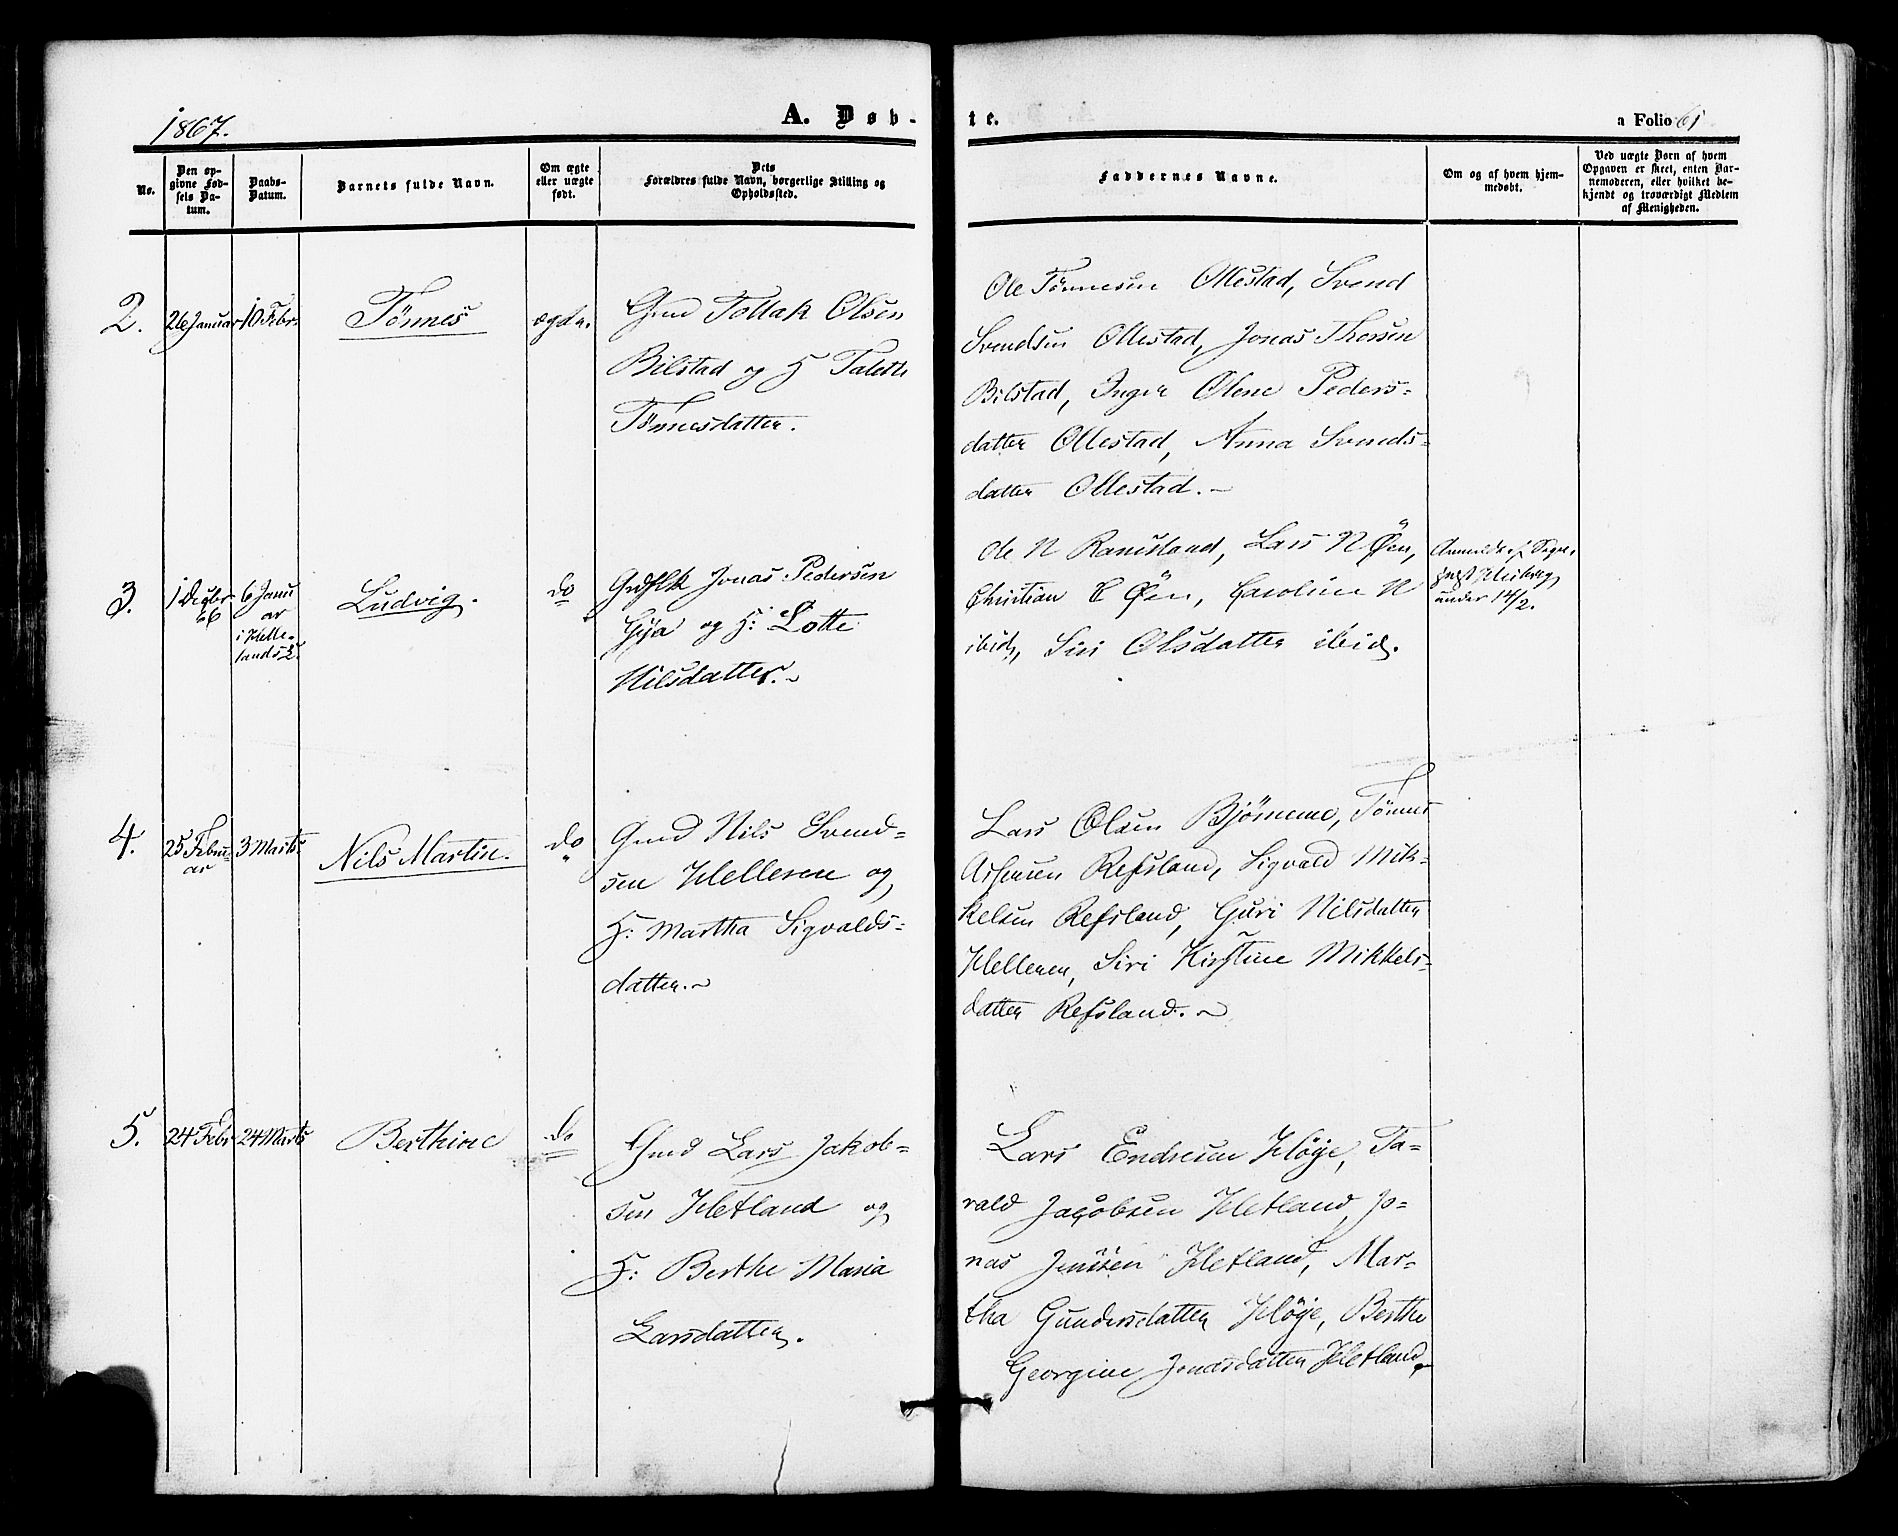 1867.
A. Døb-
te.
a Folio 61
No.
Den op-
givne Fød-
sels Da-
tum.
Daabs-
Datum.
Barnets fulde Navn.
Om ægte
eller uægte
født.
Dets
Forældres fulde Navn, borgerlige Stilling og
Opholdssted.
Faddernes Navne.
Om og af hvem hjem-
medøbt.
Ved uægte Børn af hvem
Opgaven er skeet, enten Bar-
nemoderen, eller hvilket be-
kjendt og troværdigt Medlem
af Menigheden.
2.
26 Januar
10 Febr.
Tönnes
Gmd Tollak Olsen
Bilstad og H Talette
Tönnesdatter.
Ole Tönnesen Ollestad, Svend
Svendsen Ollestad, Jonas Thorsen
Bilstad, Inger Olene Peders-
datter Ollestad, Anna Svends-
datter Ollestad.
3.
1 Decbr
66
6 Janu
ar
i Helle-
lands K.
Ludvig.
do
Jonas Pedersen
Gya og H: Lotte
Nilsdatter.
Ole N Ramsland, Lars N Øen,
Christian E Øen, Caroline N
ibid, Siri Olsdatter ibid.
Anmeldt af Sogne-
under 14/2.
4.
25 Febru-
ar
3 Marts
Nils Martin.
do
Gmd Nils Svend-
sen Helleren og
H: Martha Sigvalds-
datter.
Lars Olsen Björnemo, Tönnes
Asbjørnsen Refsland, Sigvald Mik-
kelsen Refsland, Guri Nilsdatter
Helleren, Siri Kirstine Mikkels-
datter Refsland.
5.
24 Febr
24 Marts
Berthine
do
Gmd Lars Jakob-
sen Hetland og
H: Berthe Maria
Larsdatter.
Lars Endresen Höÿe, Ta-
rald Jacobsen Hetland, Jo-
nas Jenssen Hetland, Mar-
tha Gundersdatter Höÿe, Berthe
Georgine Jonasdatter Hetland.